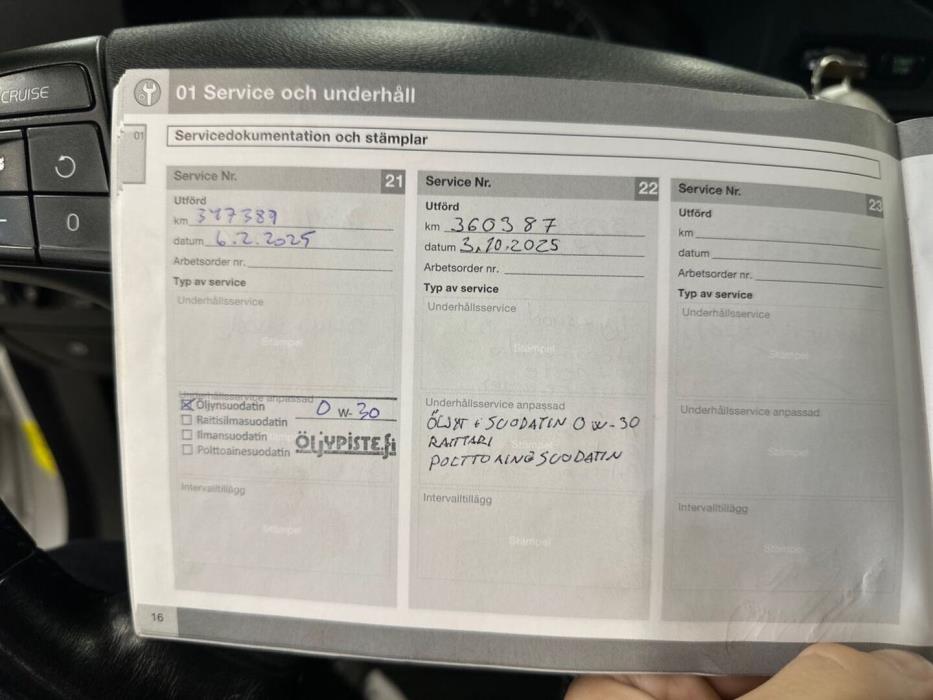 CRUISE
0
01 Service och underhåll
01
Servicedokumentation och stämplar
Service Nr. 21
Utförd
km 347389
datum 6.2.2025
Arbetsorder nr.
Typ av service
Underhållsservice
Stämpel
Underhållsservice anpassad
Öljynsuodatin 0 W- 30
Raitisilmasuodatin
Ilmansuodatin
Polttoainesuodatin
ÖLJYPISTE.fi
Intervalltillägg
Stämpel
Service Nr. 22
Utförd
km 360387
datum 3.10.2025
Arbetsorder nr.
Typ av service
Underhållsservice
Stämpel
Underhållsservice anpassad
ÖLJYT + SUODATIN 0 W-30
RAITTARI
POLTTOAINESUODATIN
Intervalltillägg
Stämpel
Service Nr. 23
Utförd
km
datum
Arbetsorder nr.
Typ av service
Underhållsservice
Stämpel
Underhållsservice anpassad
Stämpel
Intervalltillägg
Stämpel
16